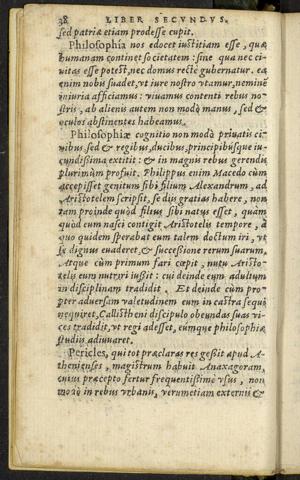 38 LIBER SECVNDVS.
sed patriæ etiam prodesse cupit.
Philosophia nos edocet iustitiam esse, quæ
humanam continet societatem: sine qua nec ci-
uitas esse potest, nec domus recte gubernatur. ea
enim nobis suadet, vt iure nostro vtamur, nemini
iniuria afficiamus: viuamus contenti rebus no-
stris, ab alienis autem non modò manus, sed &
oculos abstinentes habeamus.
Philosophiæ cognitio non modò priuatis ci-
uibus sed & regibus, ducibus, principibusque iu-
cundissima extitit: & in magnis rebus gerendis
plurimùm profuit. Philippus enim Macedo cùm
accepisset genitum sibi filium Alexandrum, ad
Aristotelem scripsit, se diis gratias habere, non
tam proinde quòd filius sibi natus esset, quàm
quòd eum nasci contigit Aristotelis tempore, à
quo quidem sperabat eum talem doctum iri, vt
se dignus euaderet, & successione rerum suarum.
Atque cùm primum fari cœpit, nutu Aristo-
telis eum nutriri iussit: cui deinde eum adultum
in disciplinam tradidit. Et deinde cùm pro-
pter aduersam valetudinem eum in castra sequi
nequiret, Callistheni discipulo obeundas suas vi-
ces tradidit, vt regi adesset, eumque philosophiæ
studiis adiuuaret.
Pericles, qui tot præclaras res gessit apud A-
thenienses, magistrum habuit Anaxagoram,
cuius præcepto fertur frequentissimè vsus, non
modò in rebus vrbanis, verumetiam externis &